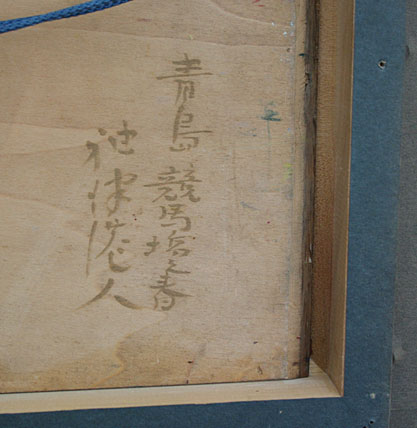 青島競馬場之春
神津港人